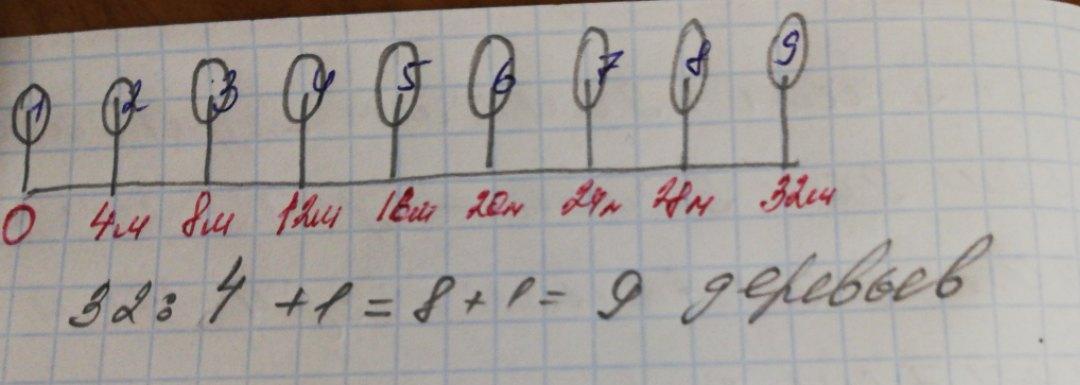 1 2 3 4 5 6 7 8 9
0 4м 8м 12м 16м 20м 24м 28м 32м
32:4 +1 = 8+1= 9 деревьев